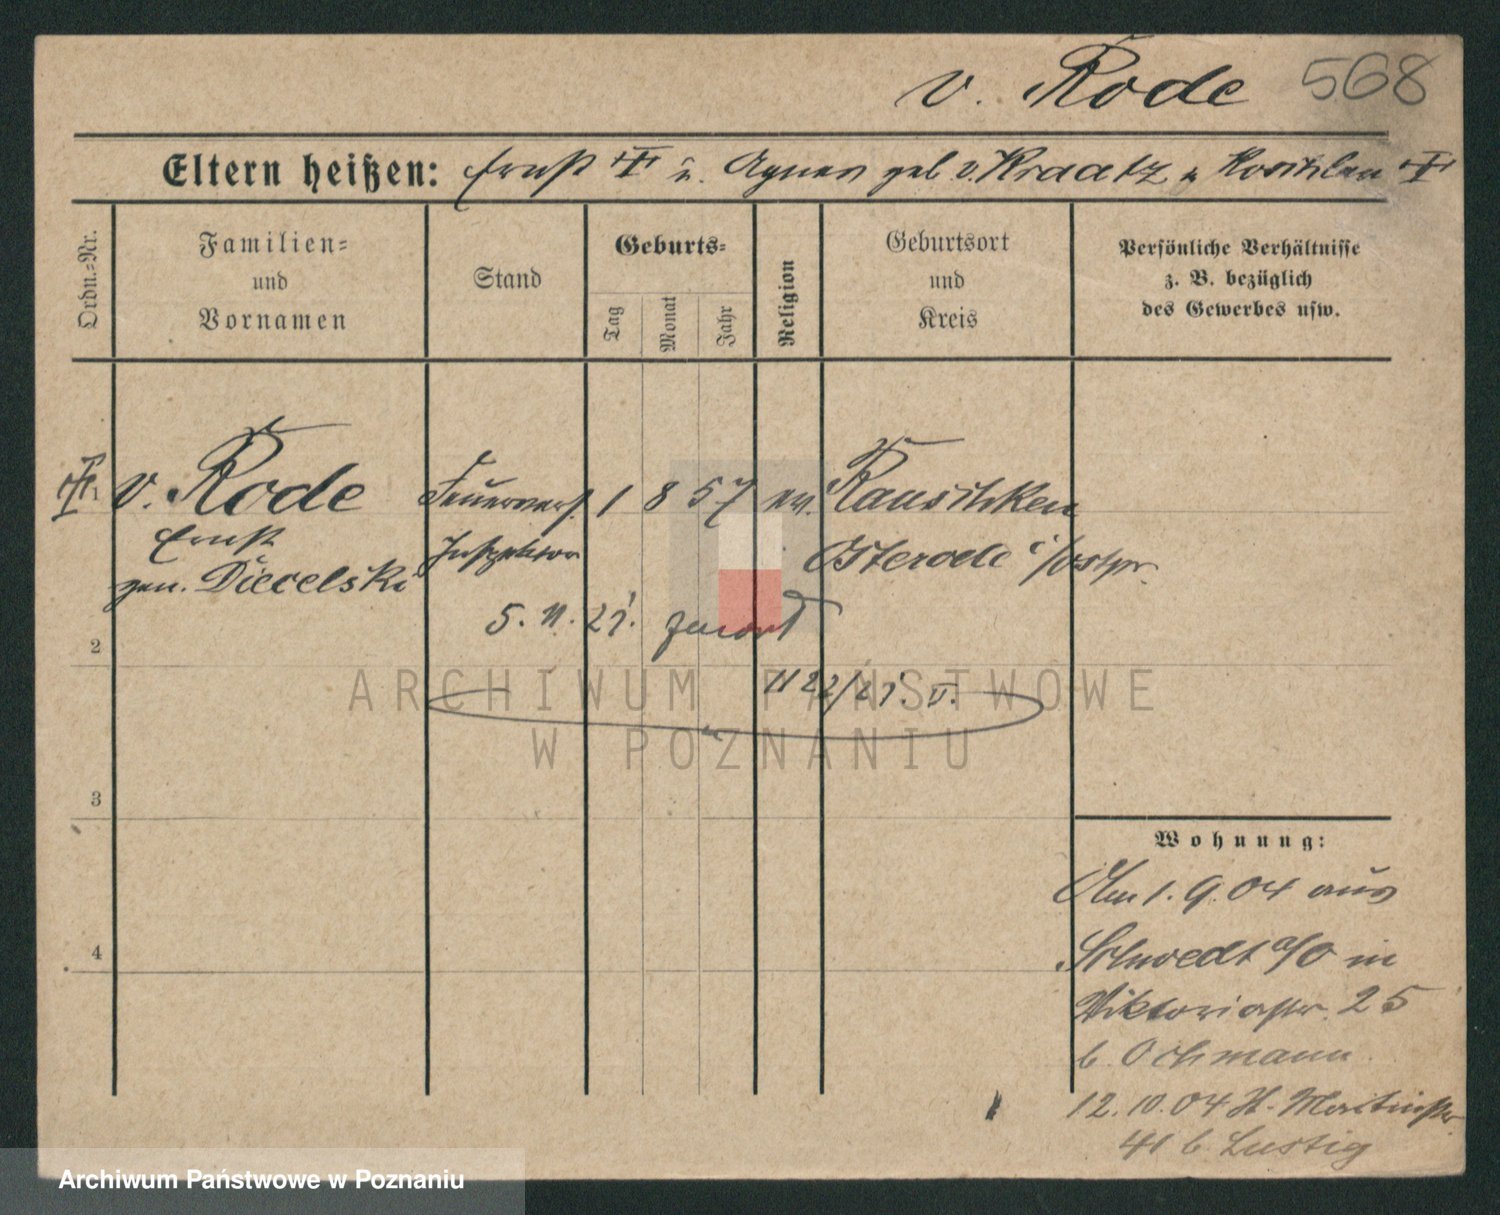 v. Rode 568
Eltern heißen: Ernst u. Agnes geb v. Kraatz
Ordn.=Nr.
Familien=
und
Vornamen
Stand
Geburts=
Tag
Monat
Jahr
Religion
Geburtsort
und
Kreis
Persönliche Verhältnisse
z. B. bezüglich
des Gewerbes usw.
v. Rode Feuervers. 1 8 57 ev. Rauschken
Ernst Inspektor Osterode i/Ostpr.
gen. Diecelski
5. 11. 21.
2
1122/21. V.
3
4
Wohnung:
Am 1. 9. 04 aus
Schwedt a/O in
Viktoriastr. 25
b. Ochmann
12. 10. 04 St. Martinstr
41 b Lustig
ARCHIWUM PAŃSTWOWE
W POZNANIU
Archiwum Państwowe w Poznaniu